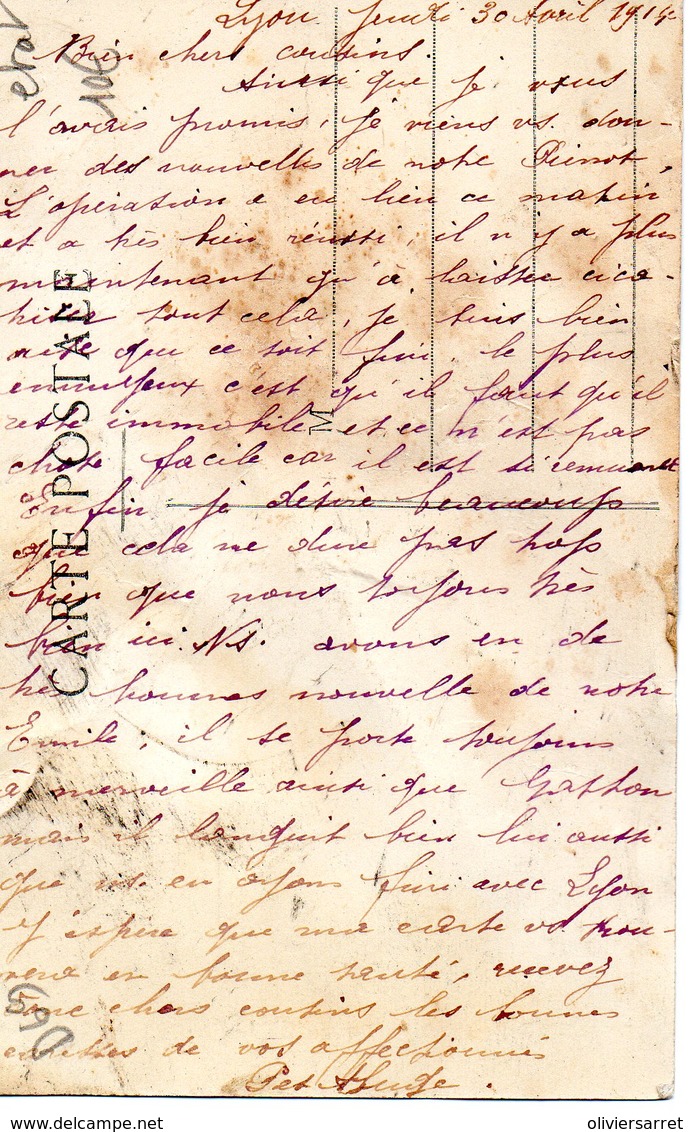 Lyon Jeudi 30 Avril 1914
Bien chers cousins.
Ainsi que je vous
l'avais promis, je viens vs. don-
ner des nouvelles de notre
L'opération a eu lieu ce matin
et a très bien réussi, il n'y a plus
maintenant qu'à laisser cica-
triser tout cela, je suis bien
aise que ce soit fini, le plus
ennuyeux c'est qu'il faut qu'il
reste immobile et ce n'est pas
chose facile car il est si remuant
Enfin je désire beaucoup
que cela ne dure pas trop
bien que nous toujours très
bien ici. Ns. avons eu de
très bonnes nouvelle de notre
Emile, il se porte toujours
à merveille ainsi que Gaston
mais il languit bien lui aussi
que vs. en ayons fini avec Lyon
J'espère que ma carte vs trou-
vera en bonne santé, recevez
donc chers cousins les bonnes
caresses de vos affectionnés
CARTE POSTALE
M
106
D69
delcampe.net
oliviersarret